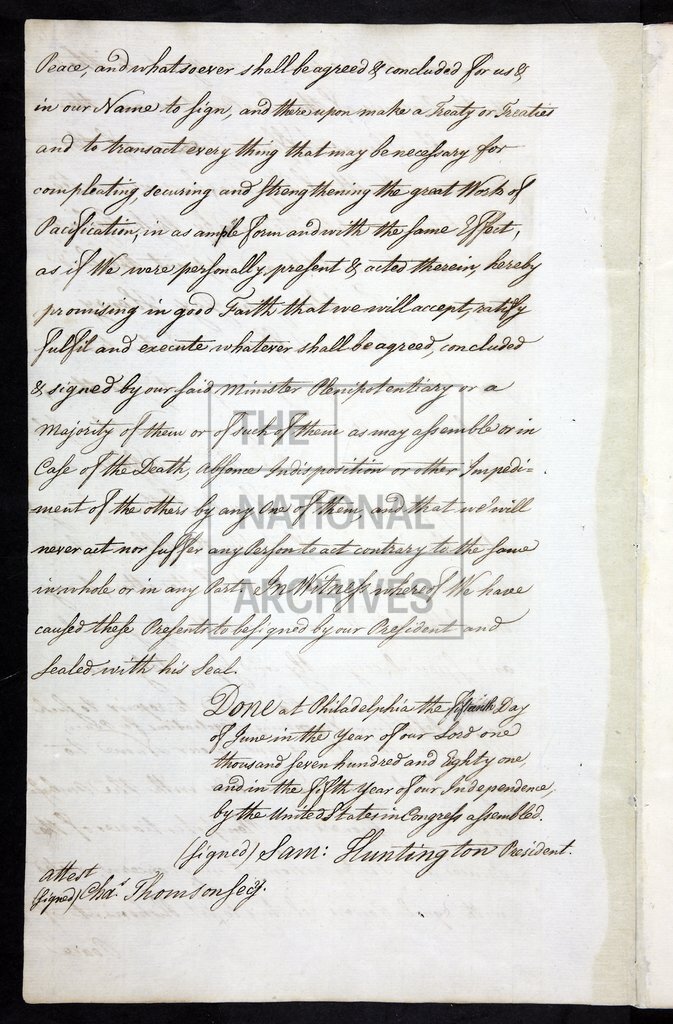 Peace, and whatsoever shall be agreed & concluded for us &
in our Name to sign, and thereupon make a Treaty or Treaties
and to transact every thing that may be necessary for
compleating, securing and strengthening the great Work of
Pacification, in as ample form and with the same Effect,
as if We were personally present & acted therein, hereby
promising in good Faith that we will accept, ratify
fulfil and execute whatever shall be agreed, concluded
& signed by our said Minister Plenipotentiary or a
Majority of them or of such of them as may assemble or in
Case of the Death, Absence Indisposition or other Impedi=
ment of the others by any One of them, and that we will
never act nor suffer any Person to act contrary to the same
in whole or in any Part. In Witness whereof We have
caused these Presents to be signed by our President and
sealed with his Seal.
Done at Philadelphia the fifteenth Day
of June in the Year of our Lord one
thousand seven hundred and Eighty one,
and in the fifth Year of our Independence,
by the United States in Congress assembled.
(signed) Sam: Huntington President.
attest
(signed) Chas. Thomson Secy.
THE
NATIONAL
ARCHIVES